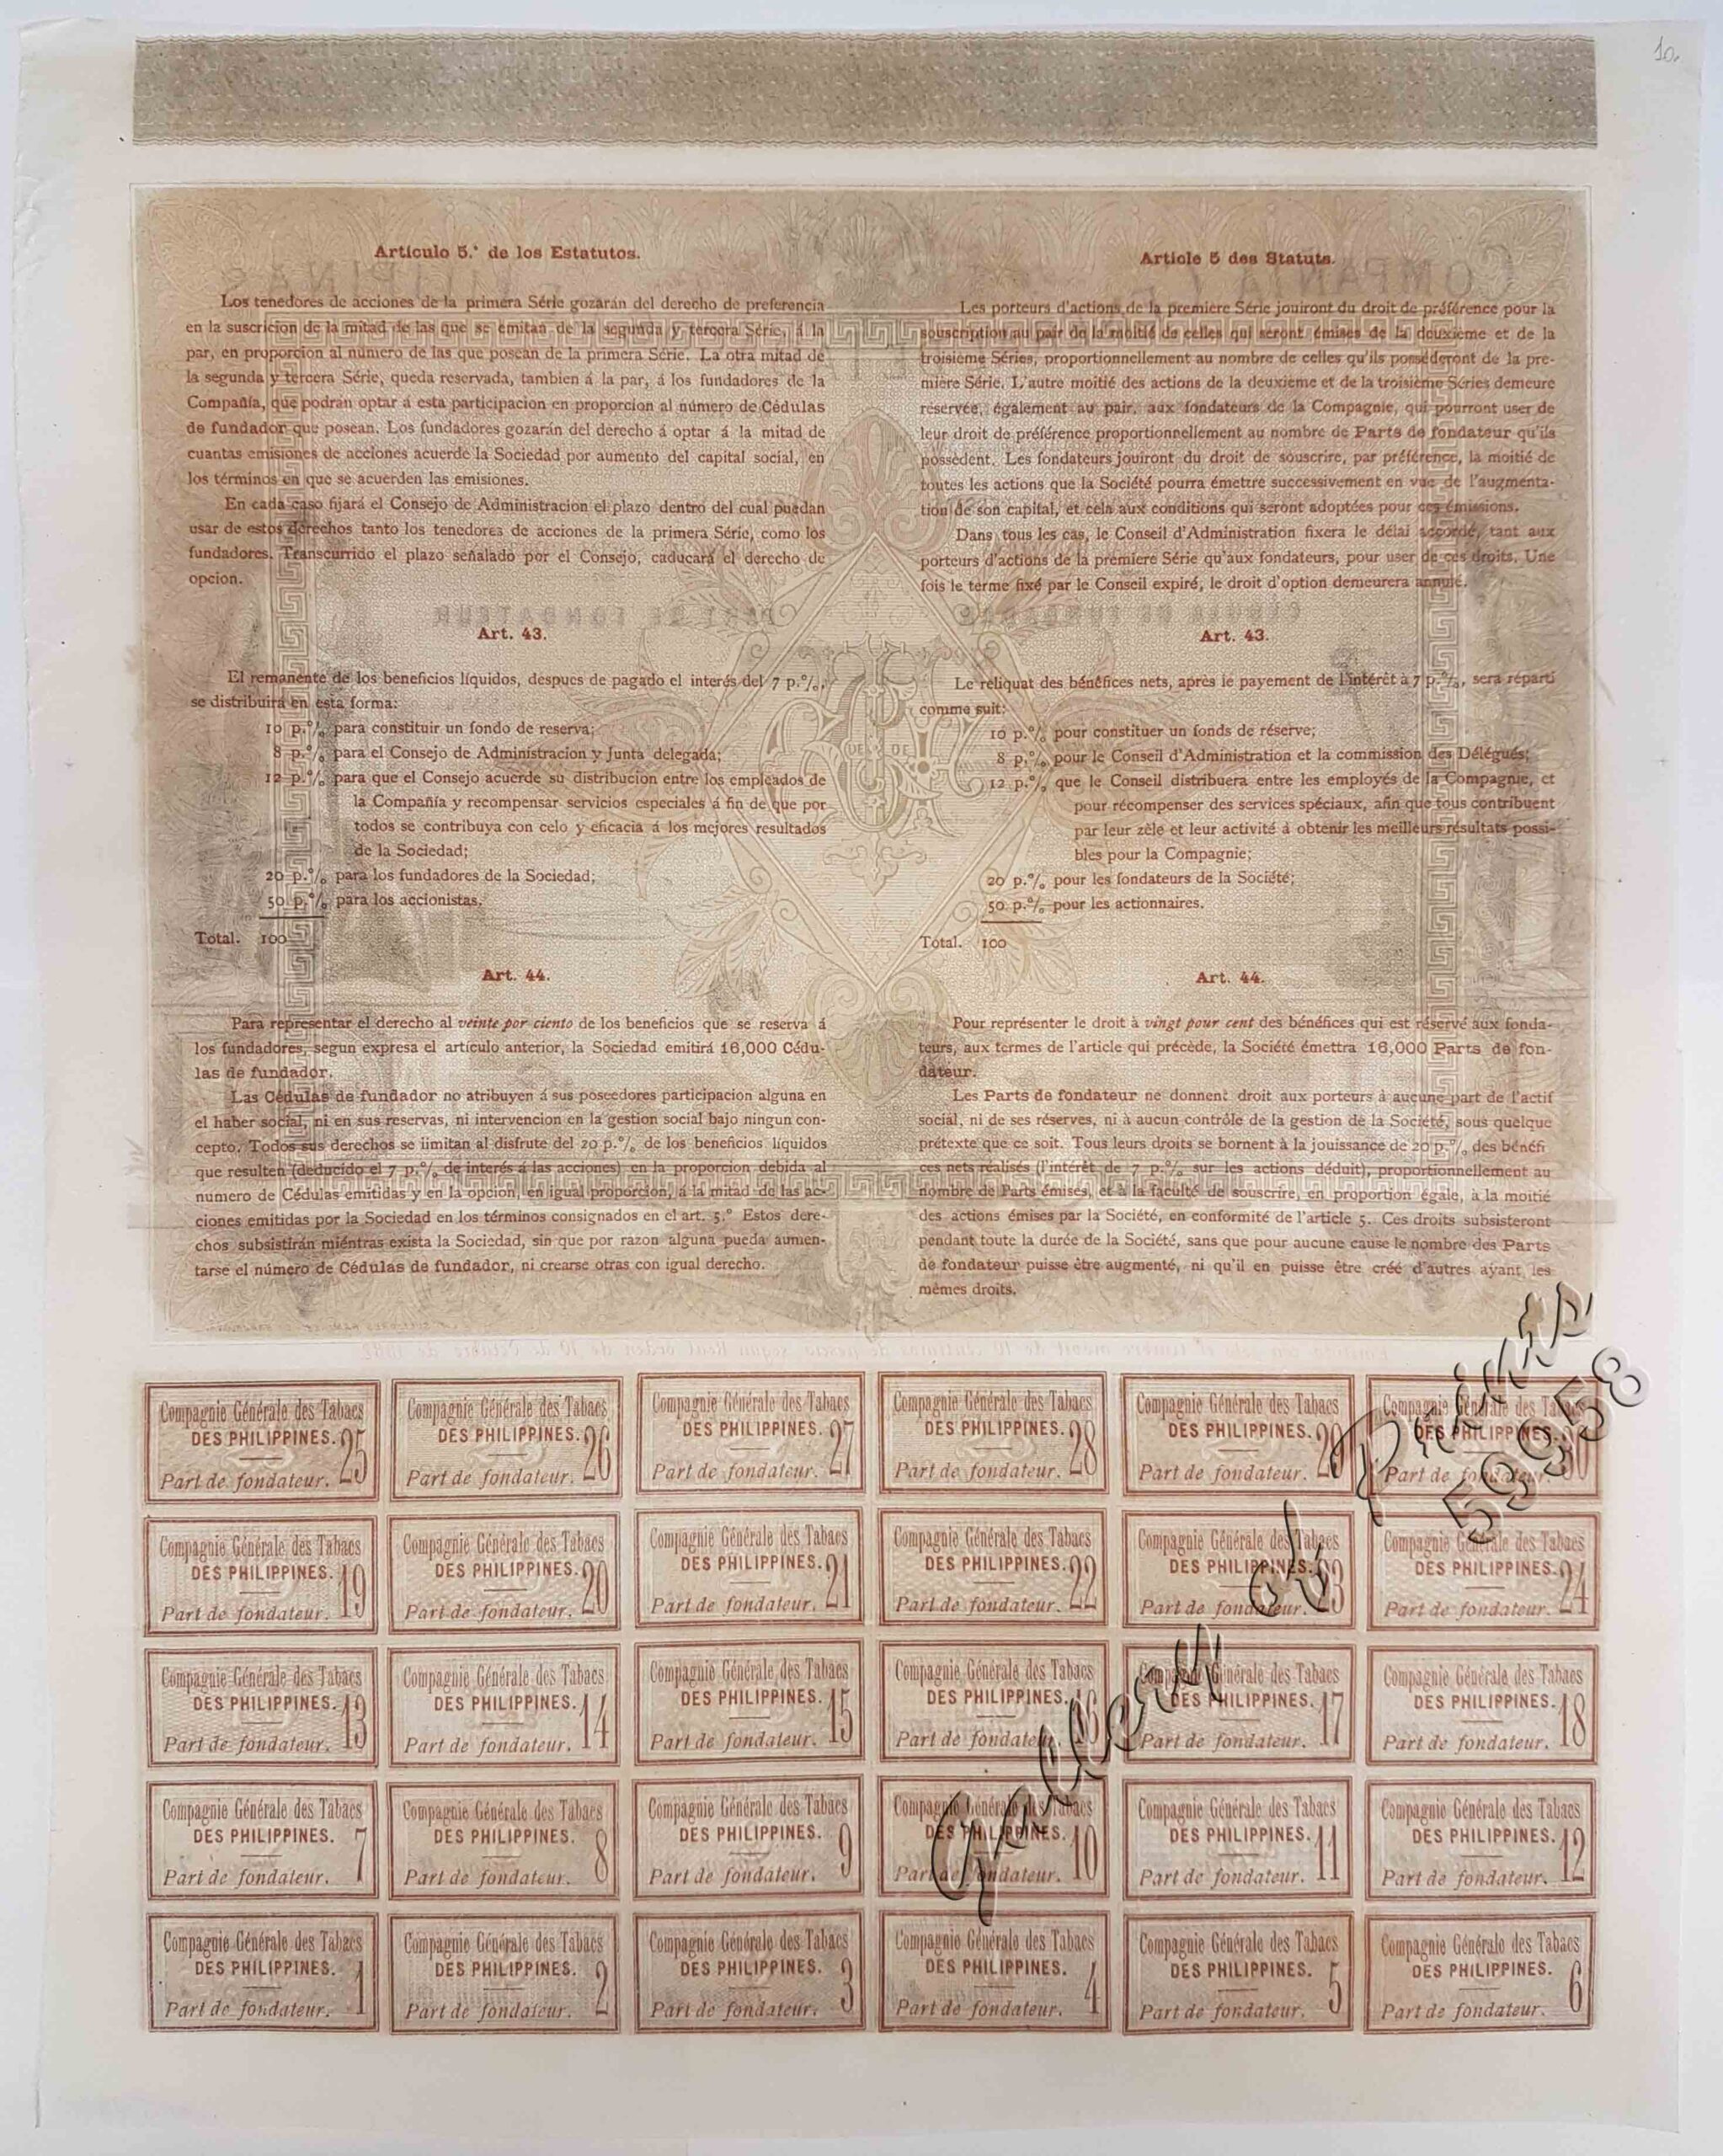 10.
Artículo 5.° de los Estatutos.
Los tenedores de acciones de la primera Série gozarán del derecho de preferencia
en la suscricion de la mitad de las que se emitan de la segunda y tercera Série, á la
par, en proporcion al número de las que posean de la primera Série. La otra mitad de
la segunda y tercera Série, queda reservada, tambien á la par, á los fundadores de la
Compañía, que podrán optar á esta participacion en proporcion al número de Cédulas
de fundador que posean. Los fundadores gozarán del derecho á optar á la mitad de
cuantas emisiones de acciones acuerde la Sociedad por aumento del capital social, en
los términos en que se acuerden las emisiones.
En cada caso fijará el Consejo de Administracion el plazo dentro del cual puedan
usar de estos derechos tanto los tenedores de acciones de la primera Série, como los
fundadores. Transcurrido el plazo señalado por el Consejo, caducará el derecho de
opcion.
Art. 43.
El remanente de los beneficios líquidos, despues de pagado el interés del 7 p.%,
se distribuirá en esta forma:
10 p.% para constituir un fondo de reserva;
8 p.% para el Consejo de Administracion y Junta delegada;
12 p.% para que el Consejo acuerde su distribucion entre los empleados de
la Compañía y recompensar servicios especiales á fin de que por
todos se contribuya con celo y eficacia á los mejores resultados
de la Sociedad;
20 p.% para los fundadores de la Sociedad;
50 p.% para los accionistas.
Total. 100
Art. 44.
Para representar el derecho al veinte por ciento de los beneficios que se reserva á
los fundadores, segun expresa el artículo anterior, la Sociedad emitirá 16,000 Cédu-
las de fundador.
Las Cédulas de fundador no atribuyen á sus poseedores participacion alguna en
el haber social, ni en sus reservas, ni intervencion en la gestion social bajo ningun con-
cepto. Todos sus derechos se limitan al disfrute del 20 p.% de los beneficios líquidos
que resulten (deducido el 7 p.% de interés á las acciones) en la proporcion debida al
numero de Cédulas emitidas y en la opcion, en igual proporcion, á la mitad de las ac-
ciones emitidas por la Sociedad en los términos consignados en el art. 5.° Estos dere-
chos subsistirán miéntras exista la Sociedad, sin que por razon alguna pueda aumen-
tarse el número de Cédulas de fundador, ni crearse otras con igual derecho.
Article 5 des Statuts.
Les porteurs d'actions de la premiere Série jouiront du droit de préférence pour la
souscription au pair de la moitié de celles qui seront émises de la deuxième et de la
troisième Séries, proportionnellement au nombre de celles qu'ils posséderont de la pre-
mière Série. L'autre moitié des actions de la deuxième et de la troisième Séries demeure
réservée, également au pair, aux fondateurs de la Compagnie, qui pourront user de
leur droit de préférence proportionnellement au nombre de Parts de fondateur qu'ils
possèdent. Les fondateurs jouiront du droit de souscrire, par préférence, la moitié de
toutes les actions que la Société pourra émettre successivement en vue de l'augmenta-
tion de son capital, et cela aux conditions qui seront adoptées pour ces émissions.
Dans tous les cas, le Conseil d'Administration fixera le délai accordé, tant aux
porteurs d'actions de la premiere Série qu'aux fondateurs, pour user de ces droits. Une
fois le terme fixé par le Conseil expiré, le droit d'option demeurera annulé.
Art. 43.
Le reliquat des bénéfices nets, après le payement de l'intérêt à 7 p.%, sera réparti
comme suit:
10 p.% pour constituer un fonds de réserve;
8 p.% pour le Conseil d'Administration et la commission des Délégués;
12 p.% que le Conseil distribuera entre les employés de la Compagnie, et
pour récompenser des services spéciaux, afin que tous contribuent
par leur zèle et leur activité à obtenir les meilleurs résultats possi-
bles pour la Compagnie;
20 p.% pour les fondateurs de la Société;
50 p.% pour les actionnaires.
Total. 100
Art. 44.
Pour représenter le droit à vingt pour cent des bénéfices qui est réservé aux fonda-
teurs, aux termes de l'article qui précède, la Société émettra 16,000 Parts de fon-
dateur.
Les Parts de fondateur ne donnent droit aux porteurs à aucune part de l'actif
social, ni de ses réserves, ni à aucun contrôle de la gestion de la Société, sous quelque
prétexte que ce soit. Tous leurs droits se bornent à la jouissance de 20 p.% des bénéfi
ces nets réalisés (l'intérêt de 7 p.% sur les actions déduit), proportionnellement au
nombre de Parts émises, et à la faculté de souscrire, en proportion égale, à la moitié
des actions émises par la Société, en conformité de l'article 5. Ces droits subsisteront
pendant toute la durée de la Société, sans que pour aucune cause le nombre des Parts
de fondateur puisse être augmenté, ni qu'il en puisse être créé d'autres ayant les
mêmes droits.
DE DE
Emitido con solo el timbre móvil de 10 céntimos de peseta, segun Real orden de 10 de Octubre de 1882
Compagnie Générale des Tabacs
DES PHILIPPINES. 25
Part de fondateur.
Compagnie Générale des Tabacs
DES PHILIPPINES. 26
Part de fondateur.
Compagnie Générale des Tabacs
DES PHILIPPINES. 27
Part de fondateur.
Compagnie Générale des Tabacs
DES PHILIPPINES. 28
Part de fondateur.
Compagnie Générale des Tabacs
DES PHILIPPINES. 29
Part de fondateur.
Compagnie Générale des Tabacs
DES PHILIPPINES. 30
Part de fondateur.
Compagnie Générale des Tabacs
DES PHILIPPINES. 19
Part de fondateur.
Compagnie Générale des Tabacs
DES PHILIPPINES. 20
Part de fondateur.
Compagnie Générale des Tabacs
DES PHILIPPINES. 21
Part de fondateur.
Compagnie Générale des Tabacs
DES PHILIPPINES. 22
Part de fondateur.
Compagnie Générale des Tabacs
DES PHILIPPINES. 23
Part de fondateur.
Compagnie Générale des Tabacs
DES PHILIPPINES. 24
Part de fondateur.
Compagnie Générale des Tabacs
DES PHILIPPINES. 13
Part de fondateur.
Compagnie Générale des Tabacs
DES PHILIPPINES. 14
Part de fondateur.
Compagnie Générale des Tabacs
DES PHILIPPINES. 15
Part de fondateur.
Compagnie Générale des Tabacs
DES PHILIPPINES. 16
Part de fondateur.
Compagnie Générale des Tabacs
DES PHILIPPINES. 17
Part de fondateur.
Compagnie Générale des Tabacs
DES PHILIPPINES. 18
Part de fondateur.
Compagnie Générale des Tabacs
DES PHILIPPINES. 7
Part de fondateur.
Compagnie Générale des Tabacs
DES PHILIPPINES. 8
Part de fondateur.
Compagnie Générale des Tabacs
DES PHILIPPINES. 9
Part de fondateur.
Compagnie Générale des Tabacs
DES PHILIPPINES. 10
Part de fondateur.
Compagnie Générale des Tabacs
DES PHILIPPINES. 11
Part de fondateur.
Compagnie Générale des Tabacs
DES PHILIPPINES. 12
Part de fondateur.
Compagnie Générale des Tabacs
DES PHILIPPINES. 1
Part de fondateur.
Compagnie Générale des Tabacs
DES PHILIPPINES. 2
Part de fondateur.
Compagnie Générale des Tabacs
DES PHILIPPINES. 3
Part de fondateur.
Compagnie Générale des Tabacs
DES PHILIPPINES. 4
Part de fondateur.
Compagnie Générale des Tabacs
DES PHILIPPINES. 5
Part de fondateur.
Compagnie Générale des Tabacs
DES PHILIPPINES. 6
Part de fondateur.
Gallery of Prints
59958